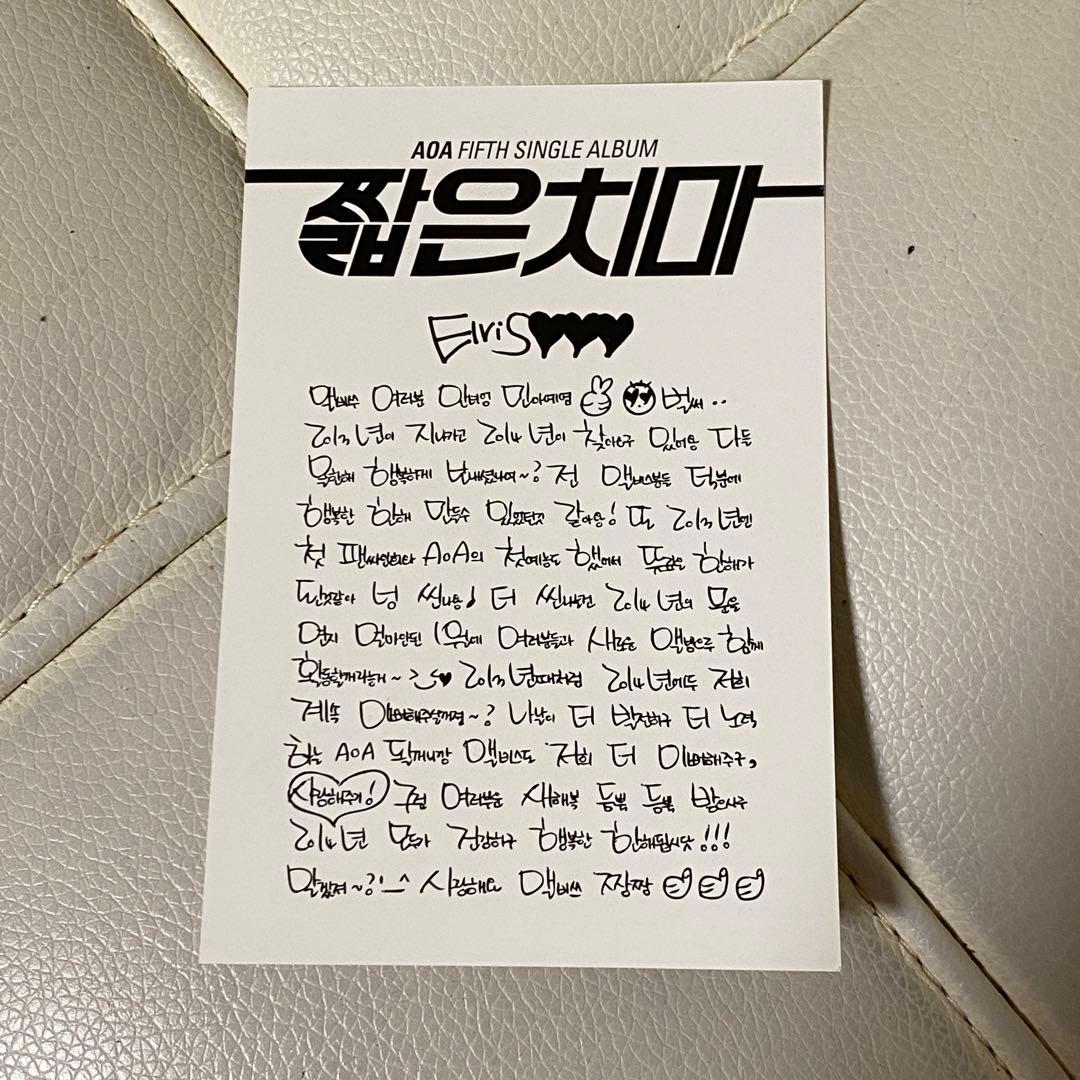 AOA FIFTH SINGLE ALBUM
짧은치마
ElviS♥♥♥
여러분 안녕 민아예염 벌써..
2013년이 지나가고 2014년이 찾아오구 있어용 다들
행복하게 보내셨나여~? 전 덕분에
행복한 한해 만들수 있었던것 같아용! 또 2013년엔
첫 팬싸인회와 AOA의 첫예능도 했어서 뜻깊은 한해가
된것같아 넝 씬나용♪ 더 씬나는건 2014년의 문을
연지 얼마안된 1월에 여러분들과 새로운 앨범으로 함께
활동할꺼라는거~ ♥ 2013년때처럼 2014년에두 저희
계속 이뻐해주실꺼져~? 나날이 더 발전하구 더 노력
하는 AOA 될꺼니깐 저희 더 이뻐해주구,
사랑해주기! 그럼 여러분 새해복 듬뿍 듬뿍 받으시구
2014년 모두가 건강하구 행복한 한해됩시닷!!!
알겠져~?!^_^ 사랑해요 짱짱